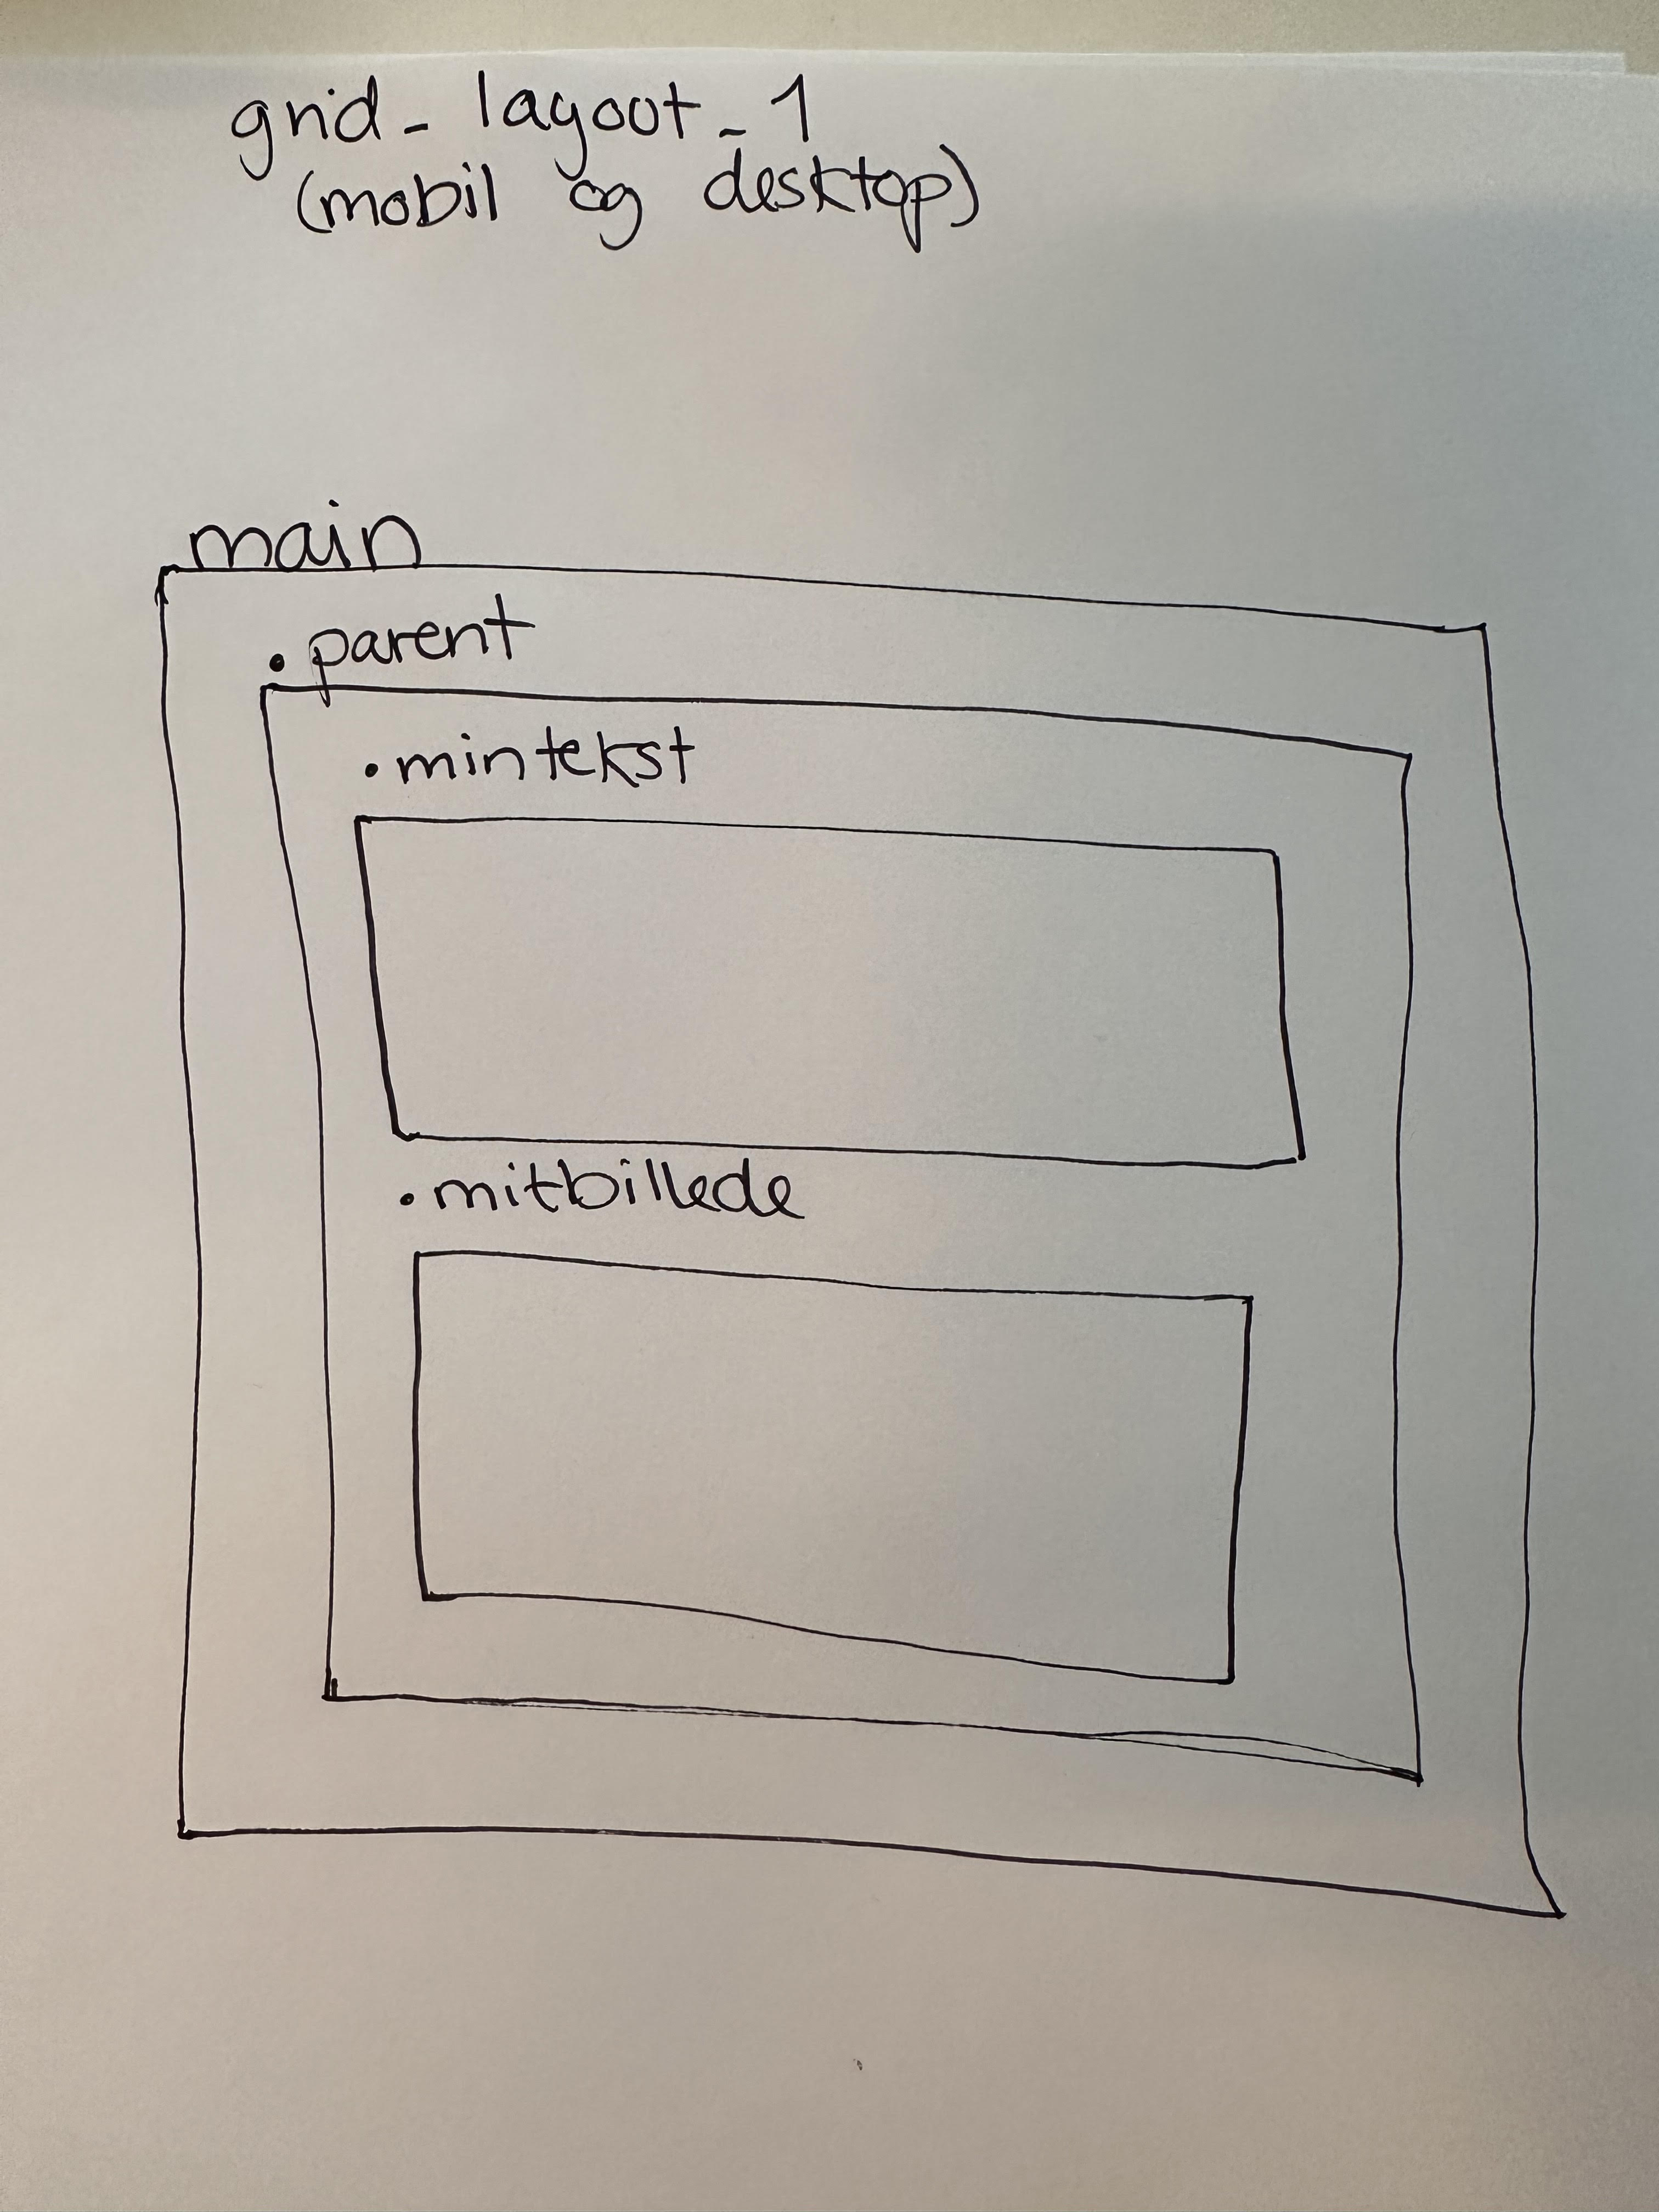 grid_layout_1
(mobil og desktop)
main
.parent
.mintekst
.mitbillede